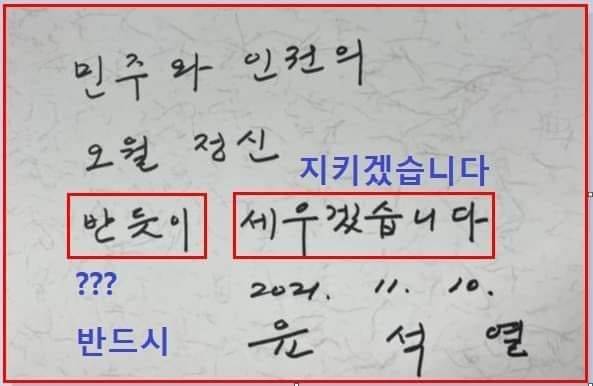 민주와 인권의
오월 정신
지키겠습니다
반듯이 세우겠습니다
???
2021. 11. 10.
반드시
윤석열